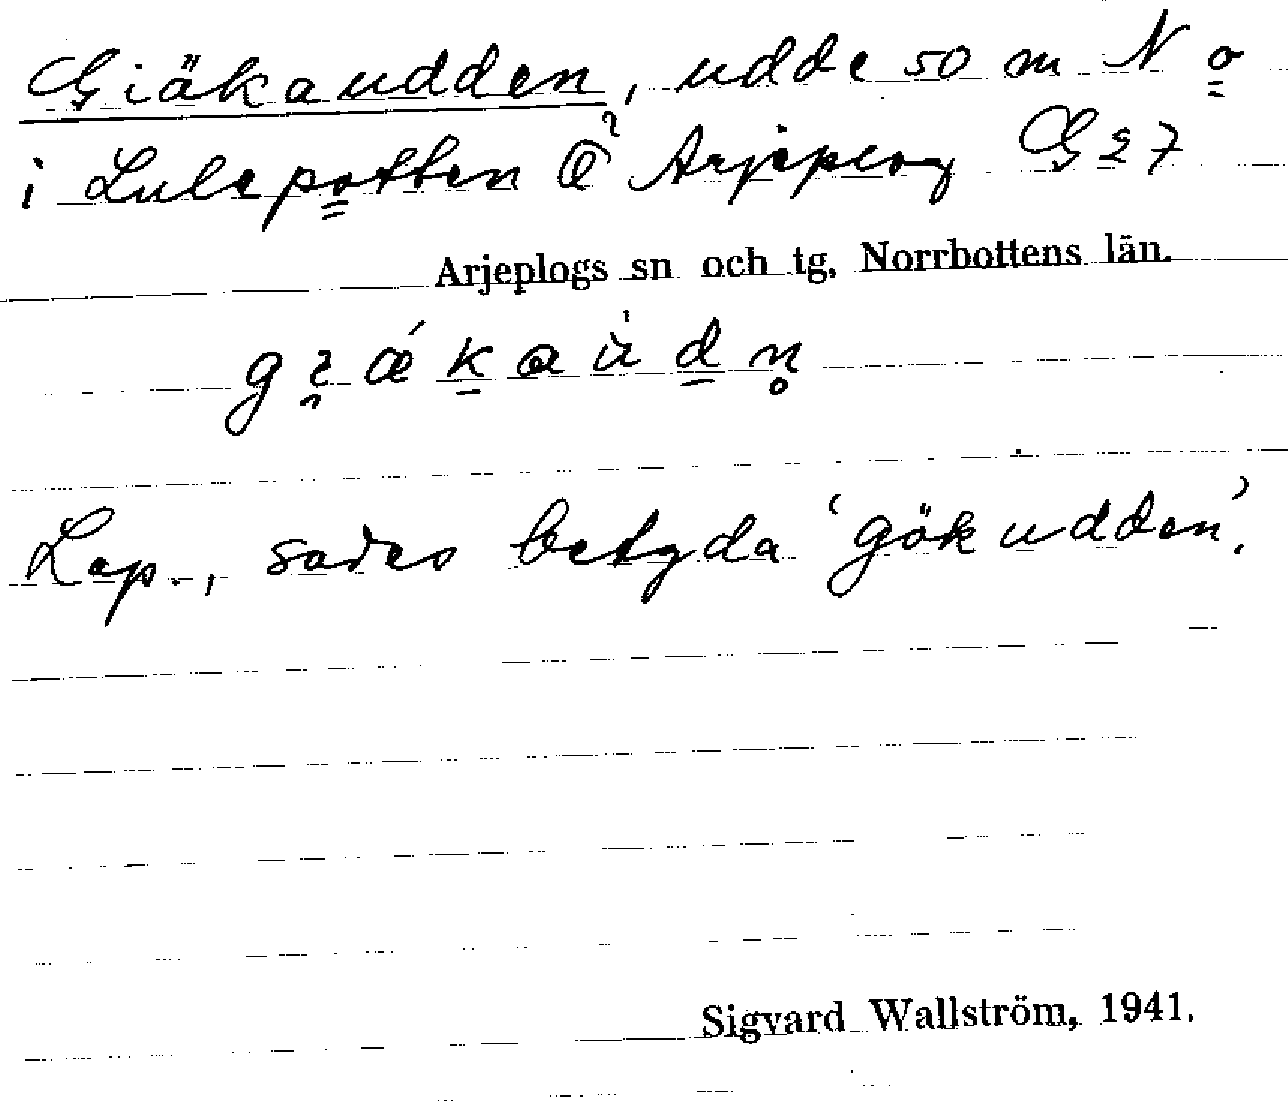 Giäkaudden, udde 50 m N o
i Lulepotten Ö Arjeplog G 27
Arjeplogs sn och tg, Norrbottens län.
Lap., sades betyda 'gökudden'.
Sigvard Wallström, 1941.